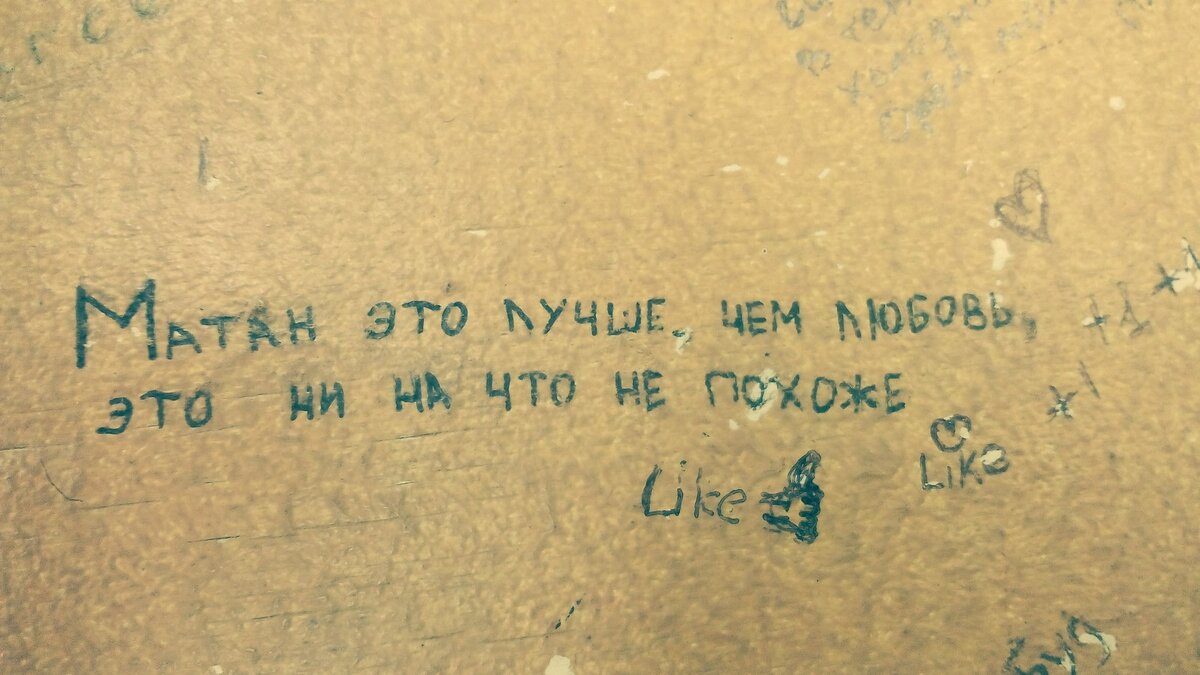 МАТАН ЭТО ЛУЧШЕ, ЧЕМ ЛЮБОВЬ,
ЭТО НИ НА ЧТО НЕ ПОХОЖЕ
+1
+1
+1
Like
Like